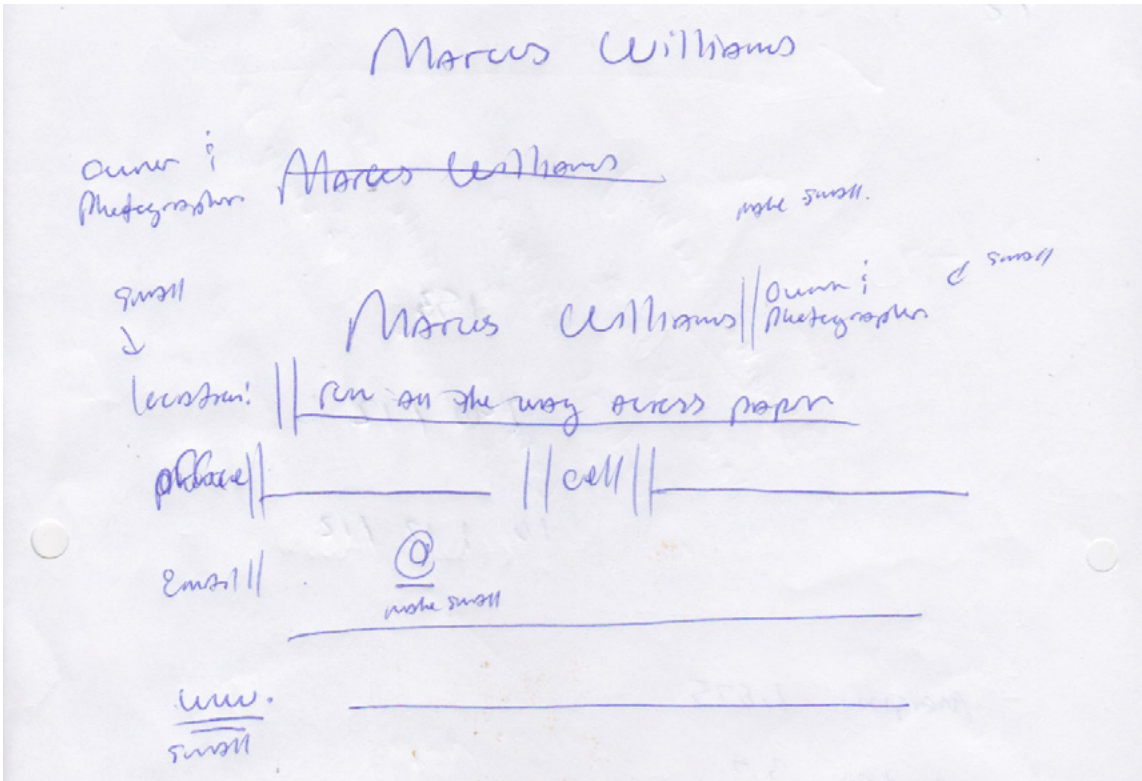 Marcus Williams
Owner &
Photographer
Marcus Williams
make small.
small
Marcus Williams || Owner &
Photographer
small
location: || run all the way across paper
|| cell ||
Email || @
make small
www.
small